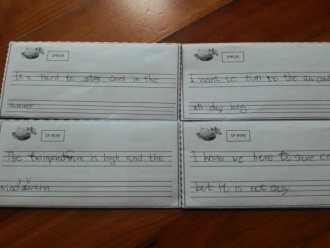 It is hard to stay cool in the
summer
I want to turn on the air cond
all day long.
The temperature is high and the
wind is warm
I know we have to save en
but it is not easy.